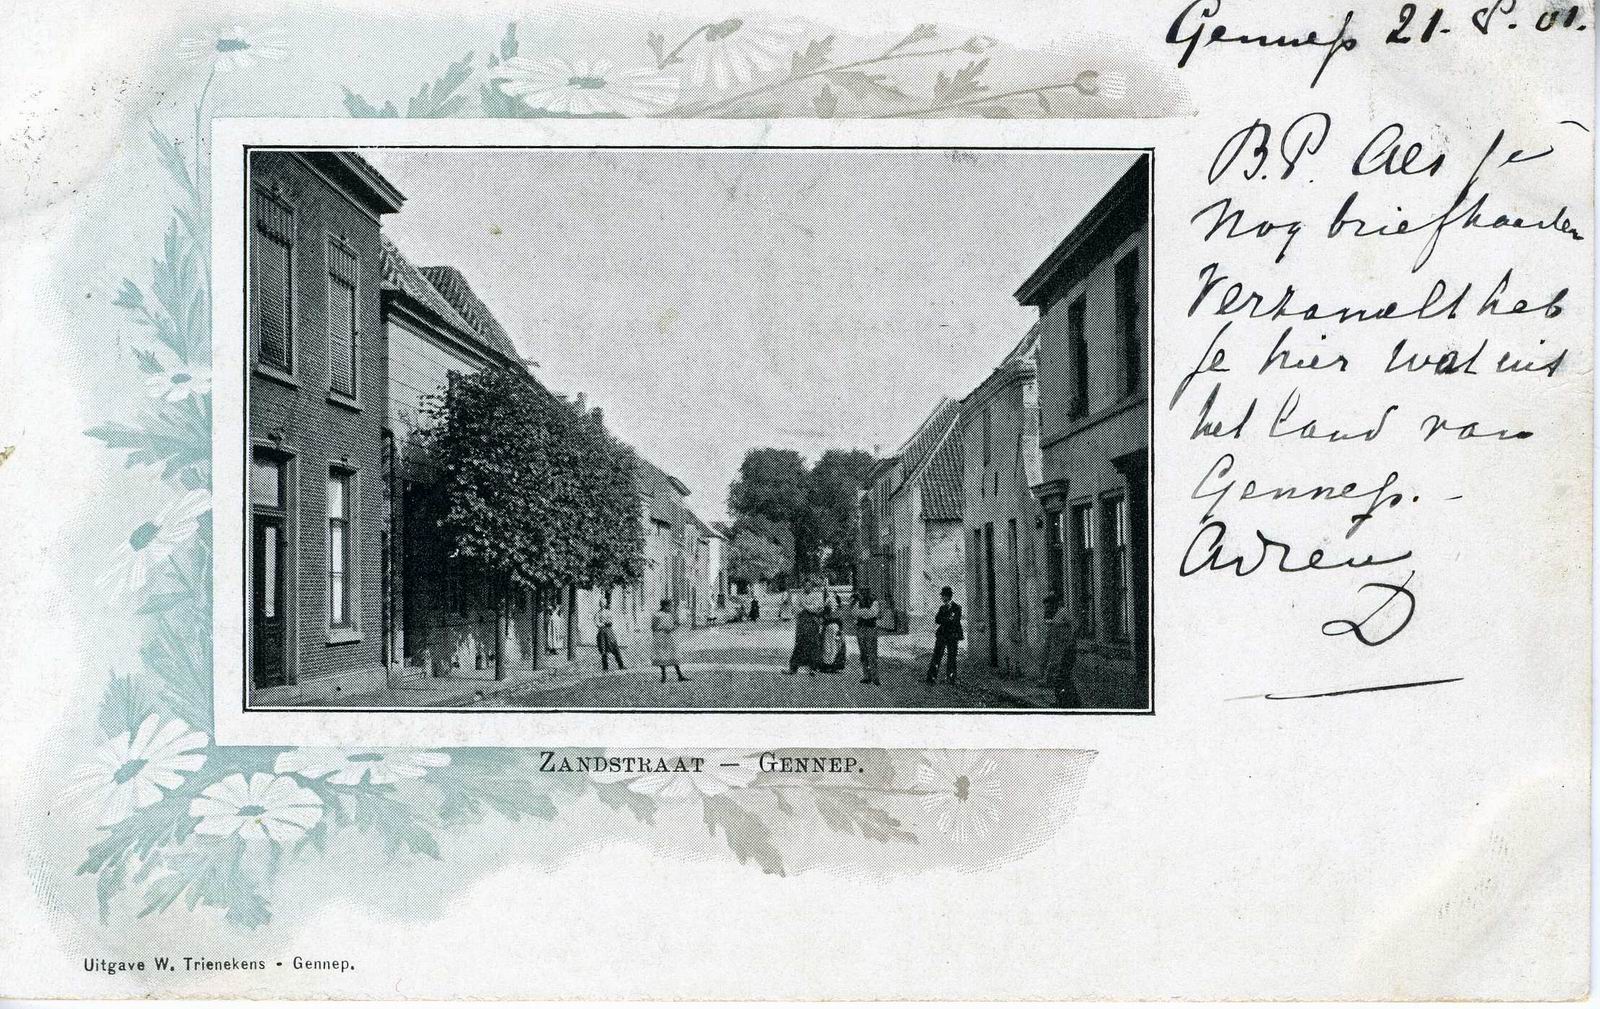 Gennep 21. 8. 01.
B.P. Als je
nog briefkaarten
verzamelt heb
je hier wat uit
het land van
Gennep. -
Adieu
D
ZANDSTRAAT — GENNEP.
Uitgave W. Trienekens - Gennep.